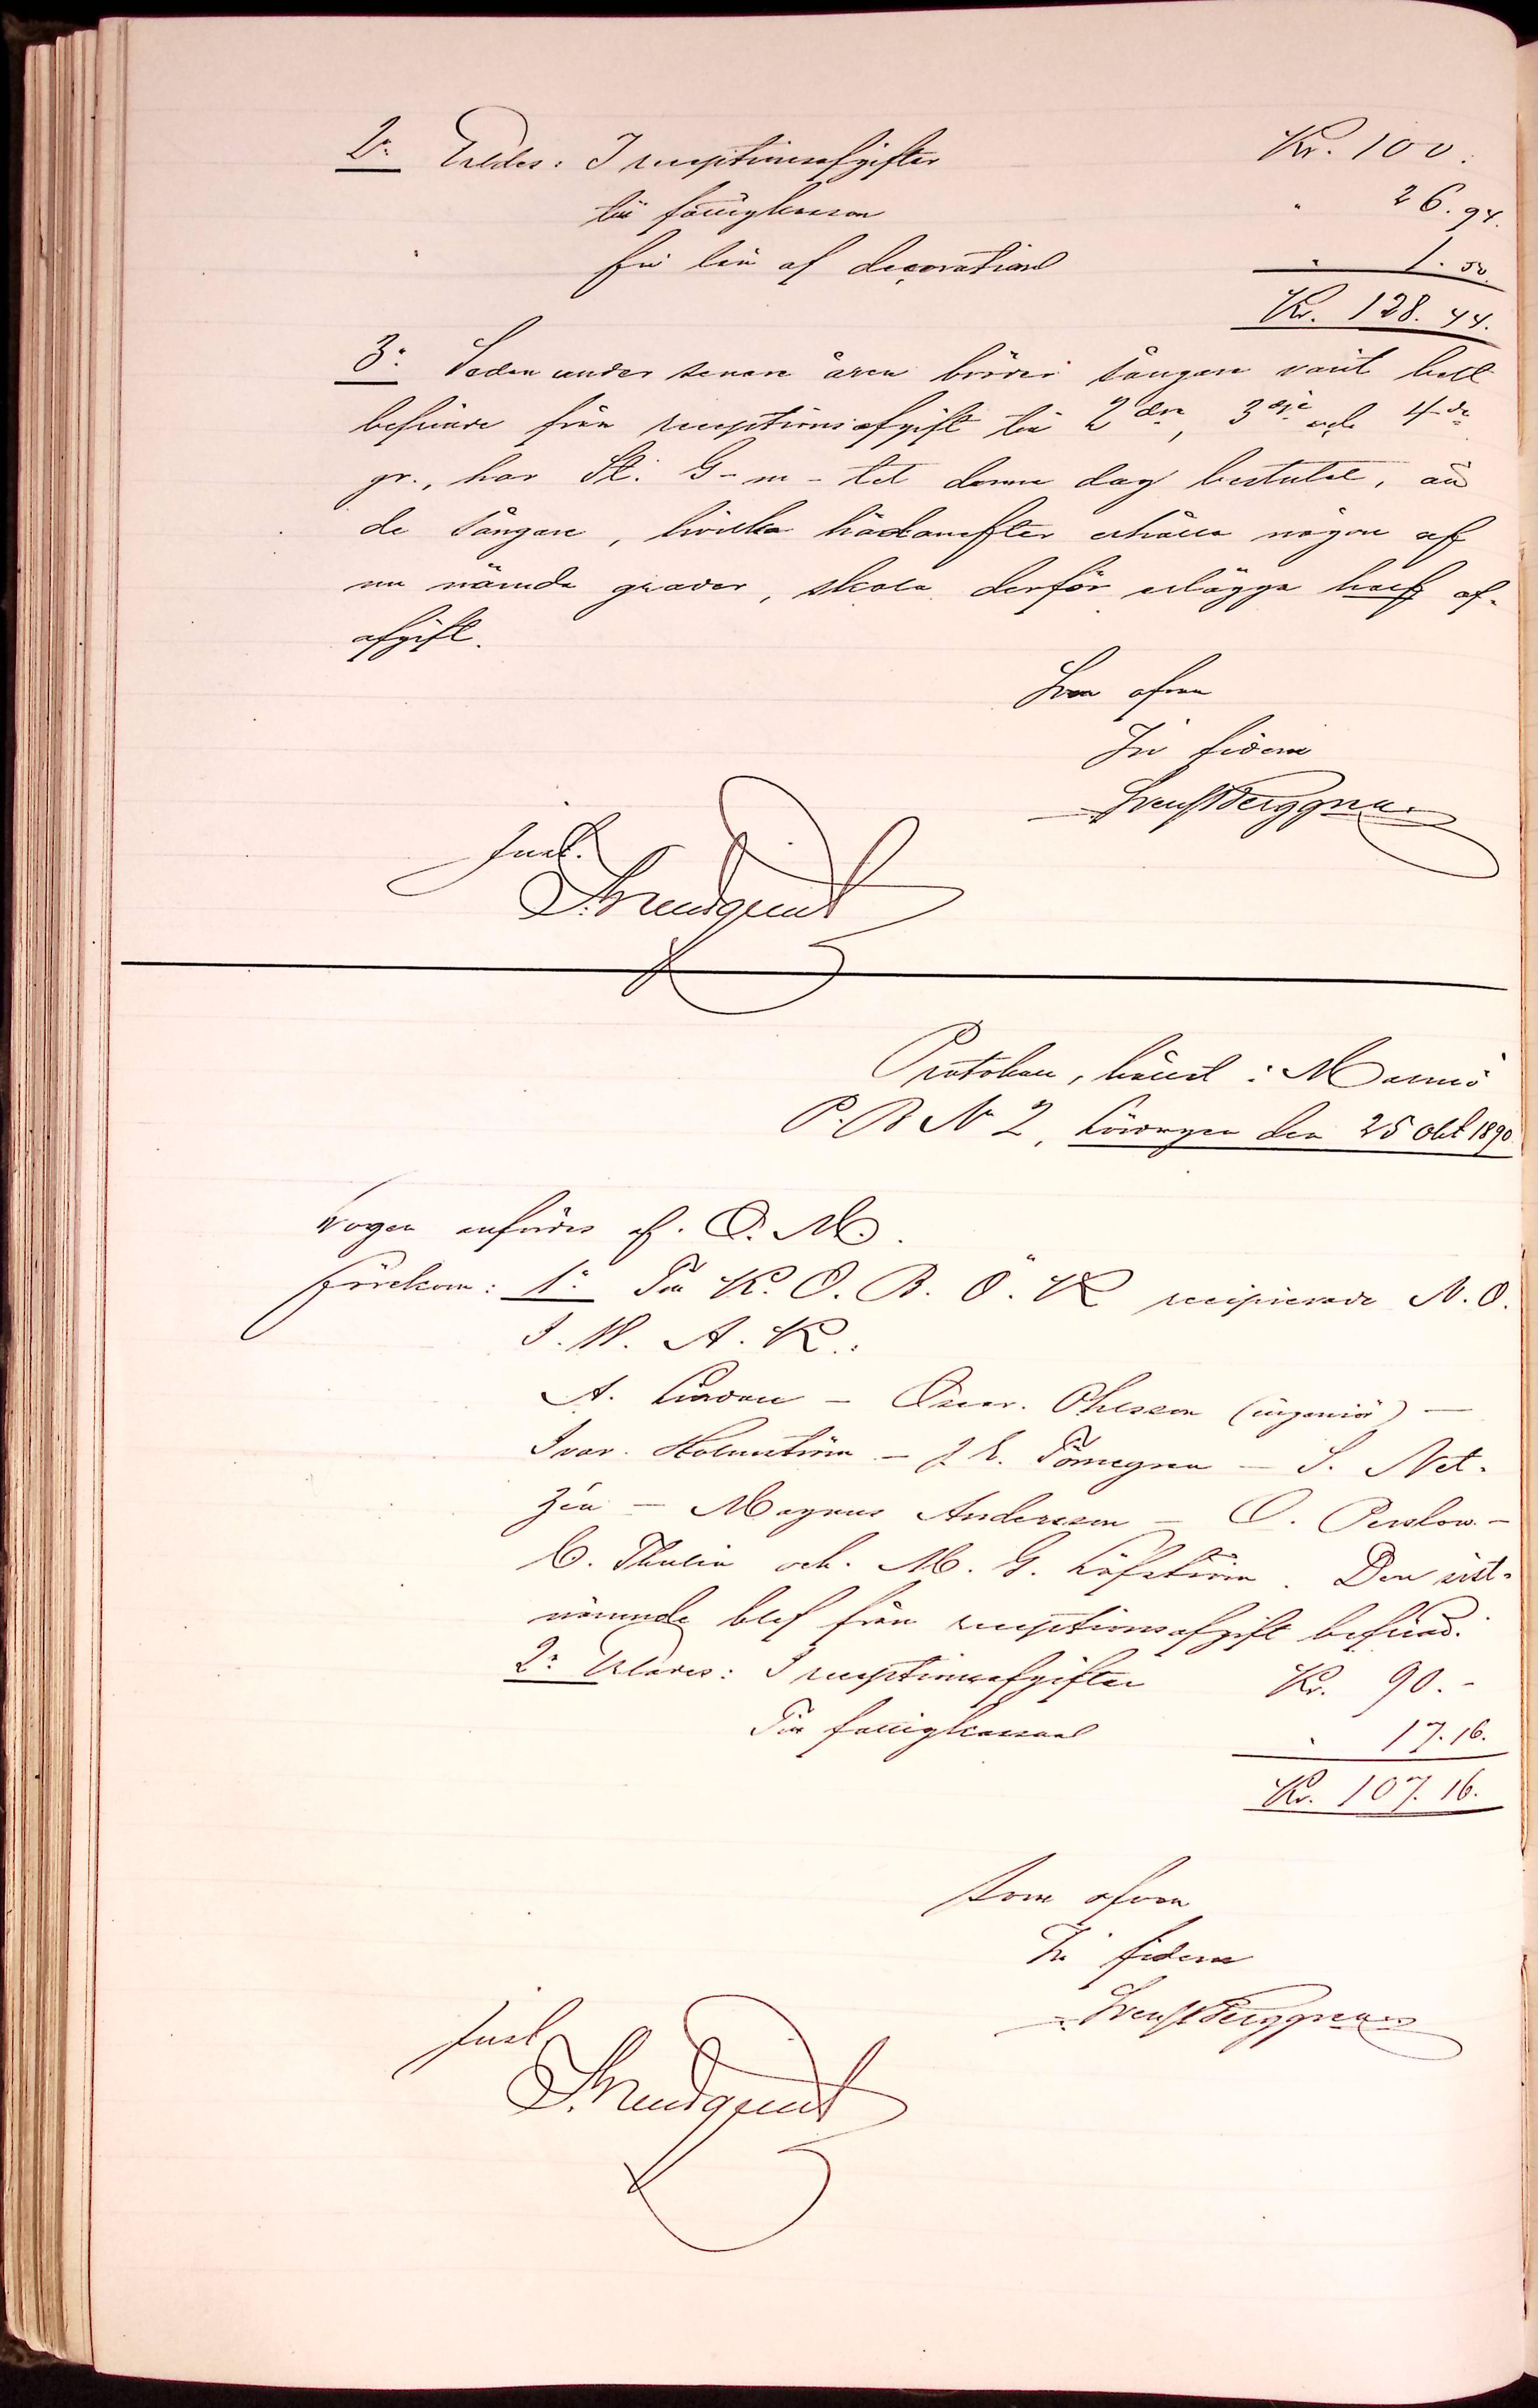 2:o Erlades: I receptionsafgifter Kr. 100.
till fattigkassan " 26.94.
för lån af decorationer " 1.50.
Kr. 128.44.
3:o Sedan under senare åren bröder sångare varit helt
befriade från receptionsafgift till 2dra, 3dje och 4de
gr., har St. G-m-tet denna dag beslutat, att
de sångare, hvilka hädanefter erhålla någon af
nu nämda grader, skola derför erlägga half af-
afgift.
Som ofvan
In fidem
Berggren
Just.
Protokoll, hållet i Malmö
P. B. No 2, Lördagen den 25 Okt 1890.
Logen anfördes af O. M.
Förekom: 1:o Till K. O. B. Ö. K recipierade N. O.
I. W. A. K.:
A. Lindvall – Oscar Ohlsson (ingeniör) –
Ivar Holmström – J. E. Törnegren – S. Net-
zén – Magnus Andersson – O. Perslow –
C. Thulin och M. G. Löfström. Den sist-
nämnde blef från receptionsafgift befriad.
2:o Erlades: I receptionsafgifter Kr. 90.-
Till fattigkassan " 17.16.
Kr. 107.16.
Som ofvan
In fidem
Berggren
Just